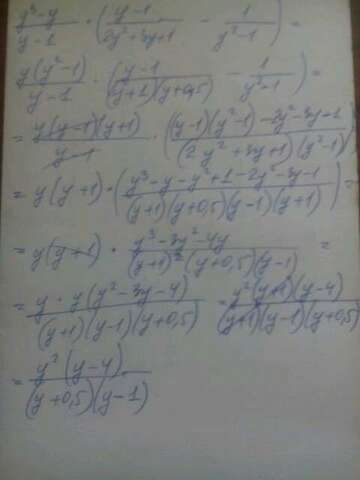 (y³-y)/(y-1) · ((y-1)/(2y²+3y+1) - 1/(y²-1)) =
(y(y²-1))/(y-1) · ((y-1)/((y+1)(y+0,5)) - 1/(y²-1)) =
= (y(y-1)(y+1))/(y-1) · (((y-1)(y²-1)-2y²-3y+1)/((2y²+3y+1)(y²-1)))
= y(y+1) · ((y³-y-y²+1-2y²-3y-1)/((y+1)(y+0,5)(y-1)(y+1))) =
= y(y+1) · (y³-3y²-4y)/((y+1)²(y+0,5)(y-1)) =
= (y·y(y²-3y-4))/((y+1)(y-1)(y+0,5)) = (y²(y+1)(y-4))/((y+1)(y-1)(y+0,5))
= (y²(y-4))/((y+0,5)(y-1))